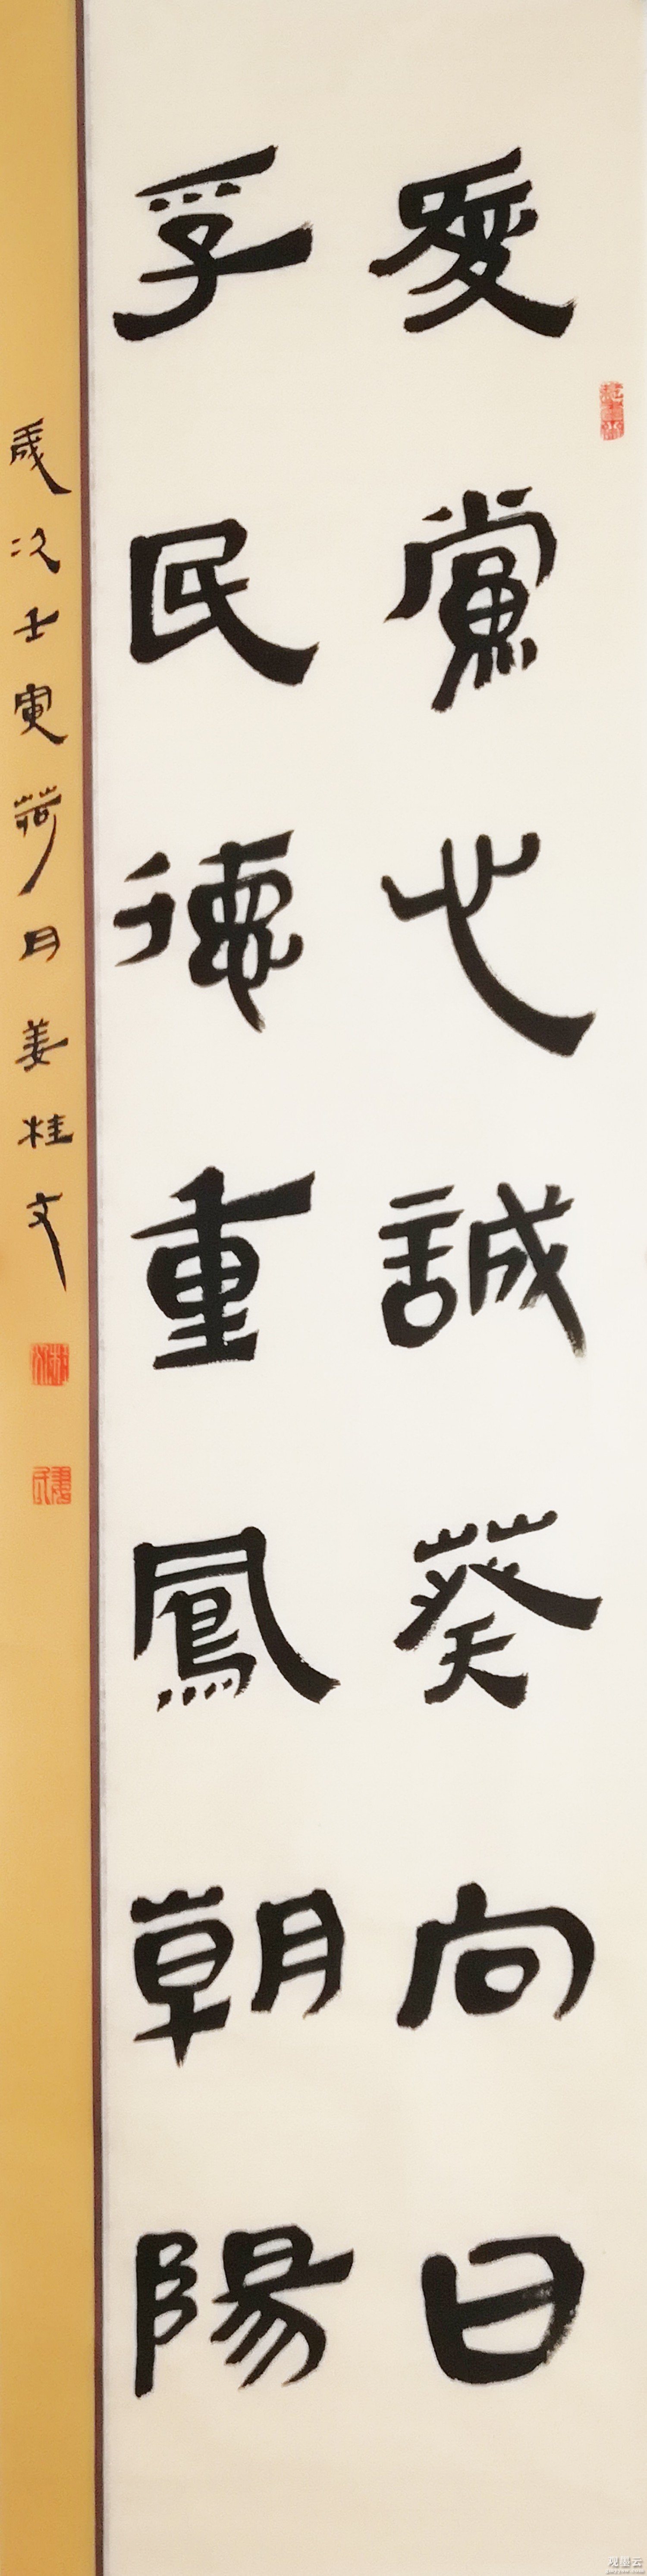 爱黨心誠葵向日
孚民德重鳳朝陽
歲次壬寅荷月姜桂文
观墨云